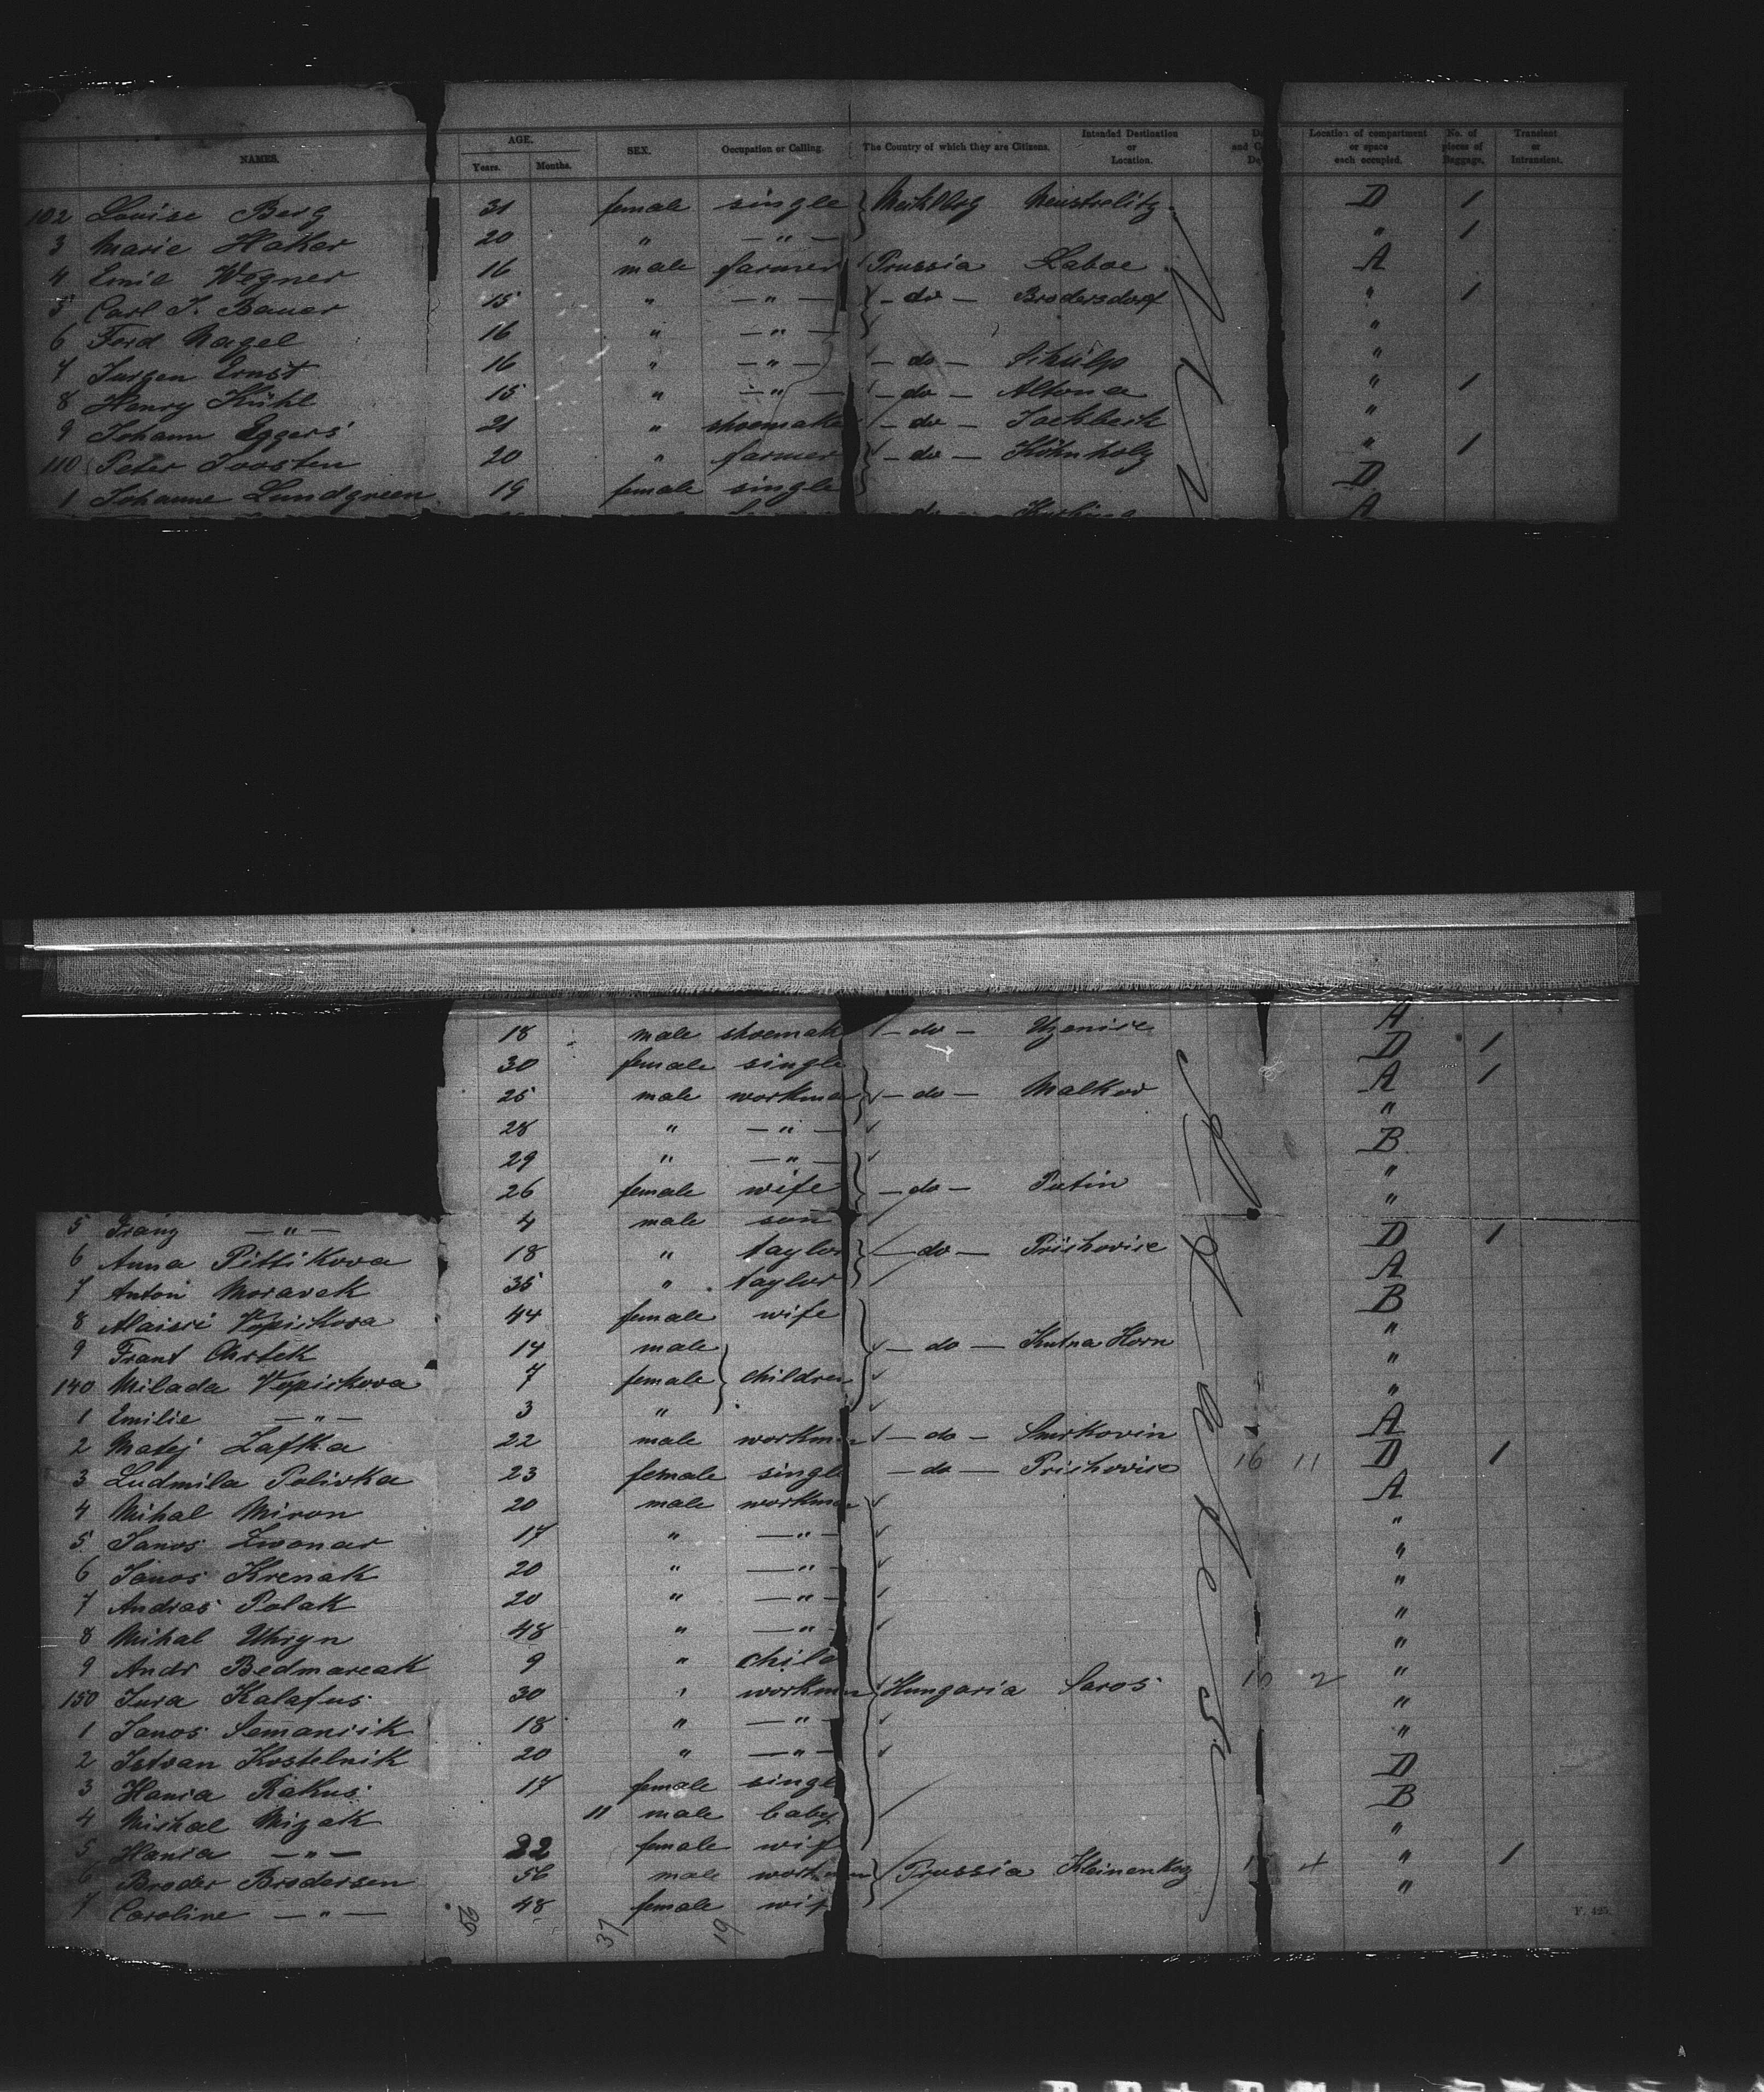 NAMES. AGE. Years. Months. SEX. Occupation or Calling. The Country of which they are Citizens. Intended Destination or Location. Location of compartment or space each occupied. No. of pieces of Baggage. Transient or Intransient.
102 Louise Berg 31 female single Mecklbg Neustrelitz D 1
3 Marie Haker 20 " — " — " 1
4 Emil Wegner 16 male farmer Prussia Laboe A
5 Carl J. Bauer 15 " — " — — do — Brodersdorf " 1
6 Ferd Nagel 16 " — " — "
7 Jurgen Ernst 16 " — " — — do — Schülp "
8 Henry Kühl 15 " — " — — do — Altona " 1
9 Johann Eggers 21 " shoemake — do — Jackbeck "
110 Peter Joosten 20 " farmer — do — Köhnholz " 1
1 Johanne Lundgreen 19 female single D
— do — A
18 male shoemak — do — Uzenice A
30 female single D 1
25 male workma — do — Malkov A 1
28 " — " — "
29 " — " — B
26 female wife — do — Putin "
5 Franz — " — 4 male son "
6 Anna Pittikova 18 " taylor — do — Prichovice D 1
7 Anton Moravek 35 " taylor A
8 Aloisie Vopickova 44 female wife B
9 Frant Chrtek 14 male — do — Kutna Horn "
140 Milada Vopickova 7 female children "
1 Emilie — " — 3 " "
2 Matej Zafka 22 male workman — do — Smrkovin A
3 Ludmila Polivka 23 female single — do — Prichovice 16 11 D 1
4 Mihal Miron 20 male workman A
5 Janos Zwonar 17 " — " — "
6 Janos Krenak 20 " — " — "
7 Andras Polak 20 " — " — "
8 Mihal Uhryn 48 " — " — "
9 Andr Bedmarcak 9 " child "
150 Jura Kalafus 30 " workman Hungaria Saros 2 "
1 Janos Semancik 18 " — " — "
2 Istvan Kostelnik 20 " — " — "
3 Hania Rakus 17 female single D
4 Michal Mizak 11 male baby B
5 Hania — " — 22 female wif "
6 Broder Brodersen 56 male workman Prussia Kleinenkog 4 " 1
7 Caroline — " — 48 female wif "
37 19
F. 425.